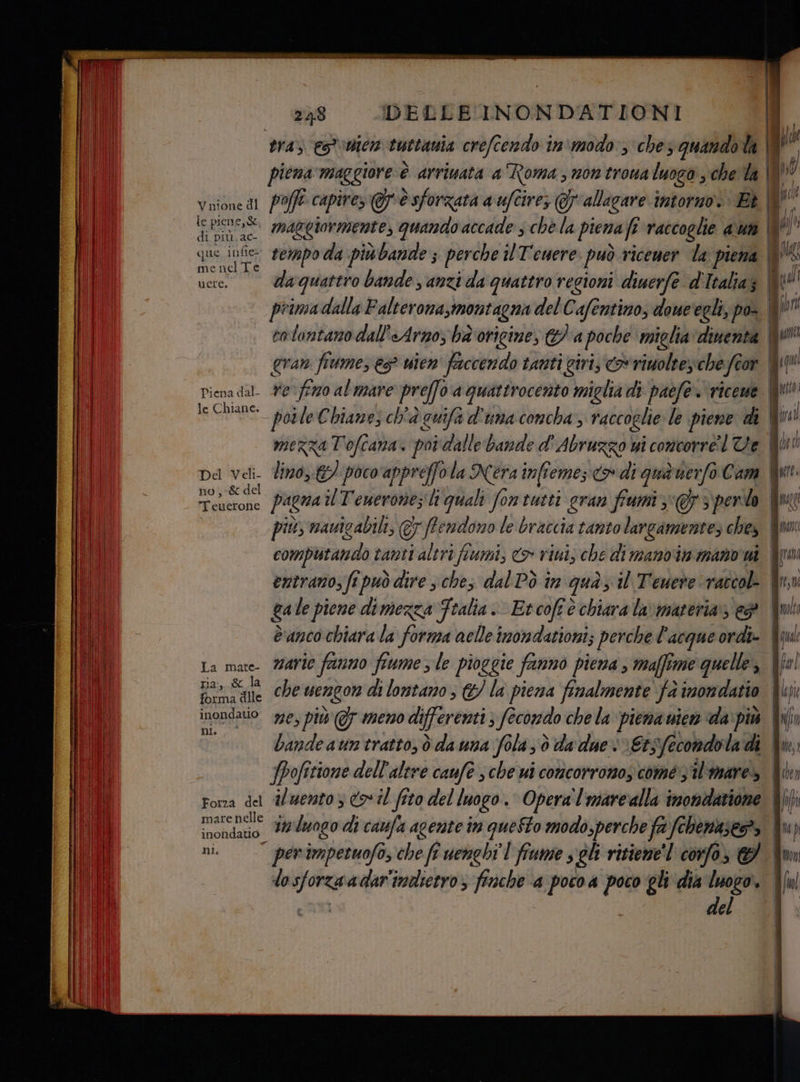 248 DELLE INONDATIONI
tra, & uien tuttauia crescendo in modo, che, quando la
piena maggiore è arriuata a Roma, non troua luogo, che la
Vnione dl
le piene, &
di più. ac-
que insie-
me nel Te
uere.
posse capire, & è sforzata a uscire, & allagare intorno. Et
maggiormente, quando accade, che la piena si raccoglie a un
tempo da più bande; perche il Teuere può riceuer la piena
da quattro bande, anzi da quattro regioni diuerse d'Italia;
prima dalla Falterona, montagna del Casentino, doue egli, po-
co lontano dall'Arno, hà origine, & a poche miglia diuenta
gran fiume, & uien faccendo tanti giri, & riuolte, che scor
Piena dal-
le Chiane.
re fino al mare presso a quattrocento miglia di paese. riceue
poi le Chiane, ch'à guisa d'una conca, raccoglie le piene di
mezza Toscana. poi dalle bande d'Abruzzo ui concorre'l Ve
Del Veli-
no, & del
Teuerone
lino, & poco appresso la Nera insieme; & di quà uerso Cam
pagna il Teuerone; li quali son tutti gran fiumi, & perlo
più, nauigabili, & stendono le braccia tanto largamente, che,
computando tanti altri fiumi, & riui, che di mano in mano ui
entrano, si può dire, che, dal Pò in quà, il Teuere raccol-
ga le piene di mezza Italia. Et così è chiara la materia, &
è anco chiara la forma delle inondationi; perche l'acque ordi-
La mate-
ria, & la
forma dlle
inondatio
ni.
narie fanno fiume, le pioggie fanno piena, massime quelle,
che uengon di lontano, & la piena finalmente fà inondatio
ne, più & meno differenti, secondo che la piena uien da più
bande a un tratto, ò da una sola, ò da due. Et, secondo la di
spositione dell'altre cause, che ui concorrono, come, il mare,
Forza del
mare nelle
inondatio
ni.
il uento, & il sito del luogo. Opera'l mare alla inondatione
in luogo di causa agente in questo modo, perche fa schena, &,
per impetuoso, che si uenghi'l fiume, gli ritiene'l corso, &
lo sforza a dar'indietro, finche a poco a poco gli dia luogo.
del